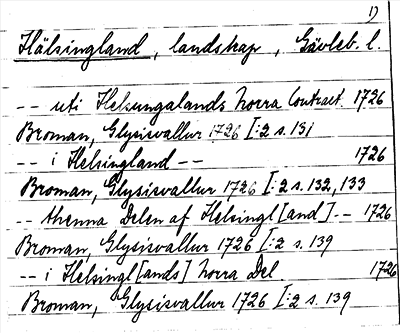 1)
Hälsingland, landskap, Gävleb. l.
-- uti Helsingalands norra Contract 1726
Broman, Glysisvallur 1726 I:2 s. 131
-- i Helsingland -- 1726
Broman, Glysisvallur 1726 I:2 s. 132, 133
-- thenna Delen af Helsingl[and] -- 1726
Broman, Glysisvallur 1726 I:2 s. 139
-- i Helsingl[ands] norra Del. 1726
Broman, Glysisvallur 1726 I:2 s. 139